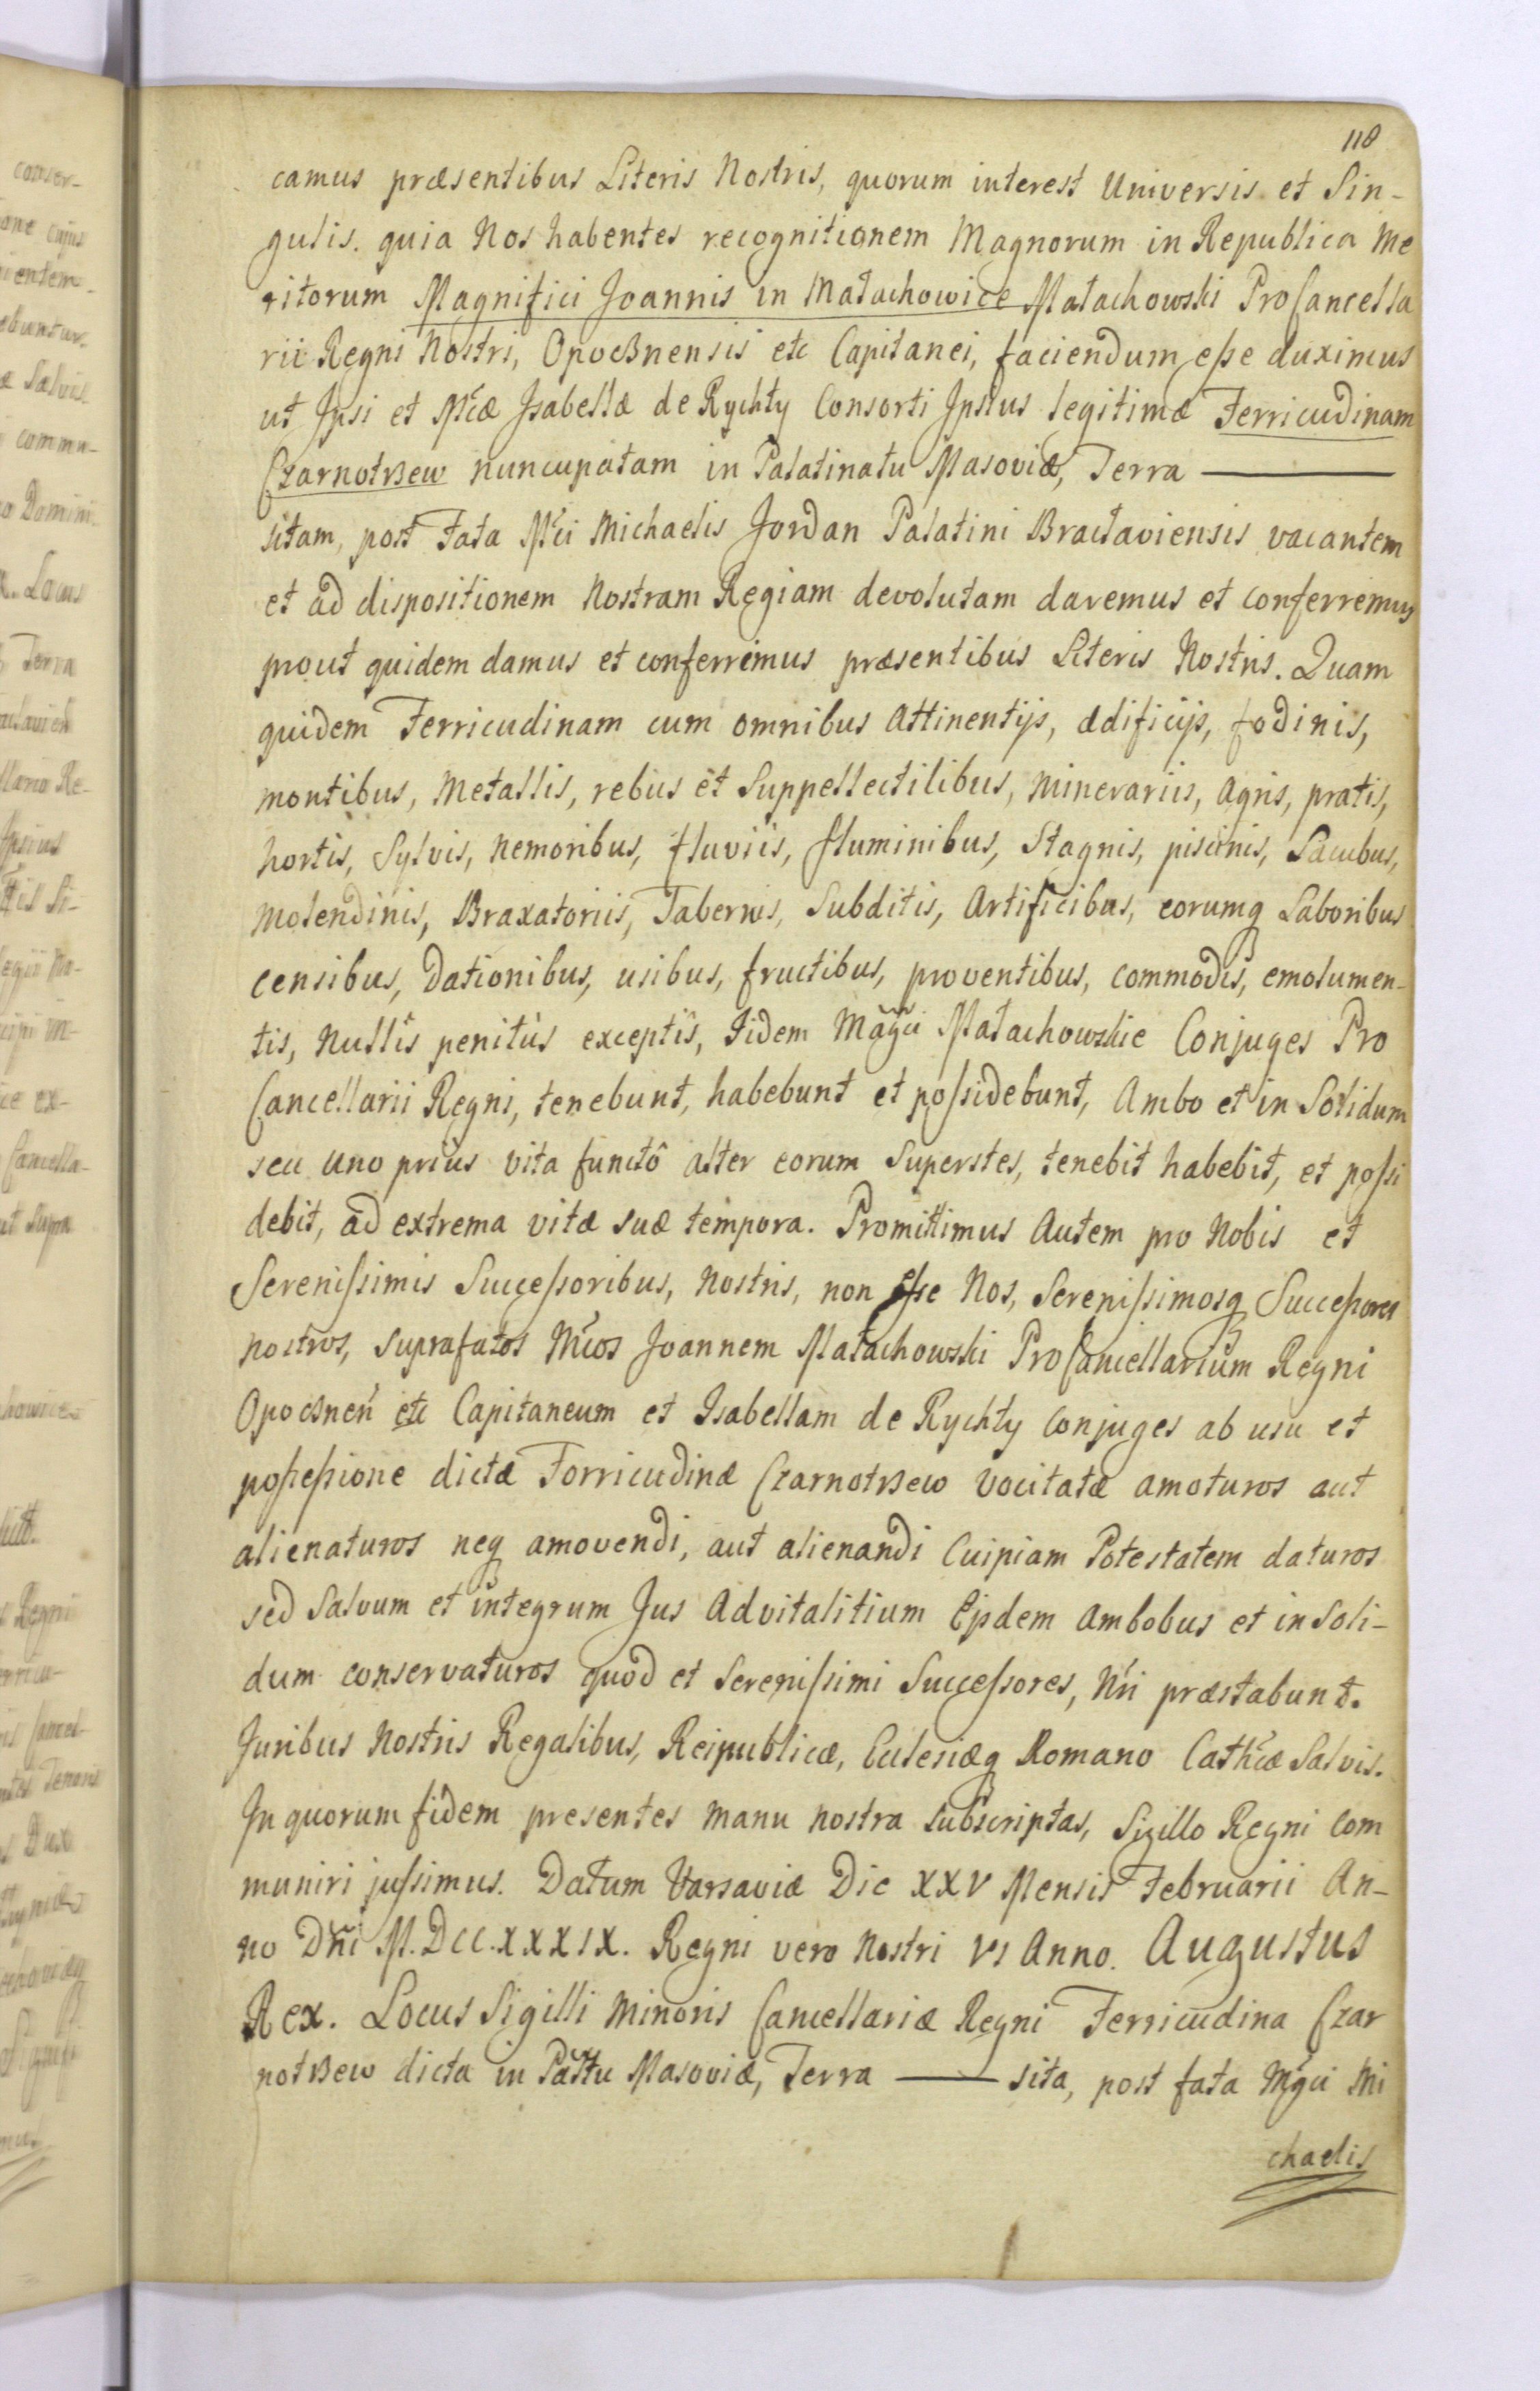 118
camus præsentibus Literis Nostris, quorum interest Universis et Sin-
gulis. quia Nos habentes recognitionem Magnorum in Republica Me
ritorum Magnifici Joannis in Małachowice Małachowski ProCancella
rii Regni Nostri, Opocznensis etc Capitanei, faciendum esse duximus
ut Ipsi et Mcæ Isabellæ de Rychty Consorti Ipsius legitimæ Ferricudinam
Czarnotrzew nuncupatam in Palatinatu Masoviæ, Terra ———
sitam, post Fata Mci Michaelis Jordan Palatini Bracłaviensis vacantem
et ad dispositionem Nostram Regiam devolutam daremus et conferremus
prout quidem damus et conferrimus præsentibus Literis Nostris. Quam
quidem Ferricudinam cum omnibus Attinentijs, ædificijs, fodinis,
montibus, Metallis, rebus et Suppellectilibus, Minerariis, Agris, pratis,
hortis, Sylvis, Nemoribus, fluviis, fluminibus, Stagnis, piscinis, Lacubus,
Molendinis, Braxatoriis, Tabernis, Subditis, Artificibus, eorumq Laboribus
censibus, Dationibus, usibus, fructibus, proventibus, commodis, emolumen-
tis, Nullis penitùs exceptîs, Iidem Magci Małachowskie Conjuges Pro
Cancellarii Regni, tenebunt, habebunt et possidebunt, Ambo et in Solidum
seu uno prius vita functô alter eorum Superstes, tenebit habebit, et possi
debit, ad extrema vitæ suæ tempora. Promittimus Autem pro Nobis et
Serenissimis Successoribus, Nostris, non esse Nos, Serenissimosq Successores
nostros, suprafatos Mcos Joannem Małachowski ProCancellarium Regni
Opocznen etc Capitaneum et Isabellam de Rychty Conjuges ab usu et
possessione dictæ Forricudinæ Czarnotrzew vocitatæ amoturos aut
alienaturos neq amovendi, aut alienandi Cuipiam Potestatem daturos
sed Salvum et integrum Jus Advitalitium Eisdem Ambobus et in Soli-
dum conservaturos quod et Serenissimi Successores, Nri præstabunt.
Juribus Nostris Regalibus, Reipublicæ, Eclesiæq Romano Cathcæ Salvis.
In quorum fidem presentes manu nostra subscriptas, Sigillo Regni Com
muniri jussimus. Datum Varsaviæ Die XXV Mensis Februarii An-
no Dni M.DCC.XXXIX. Regni vero Nostri VI Anno. Augustus
Rex. Locus Sigilli Minoris Cancellariæ Regni Ferricudina Czar
notrzew dicta in Pałtu Masoviæ, Terra ——— sita, post fata Mgci Mi
chaelis